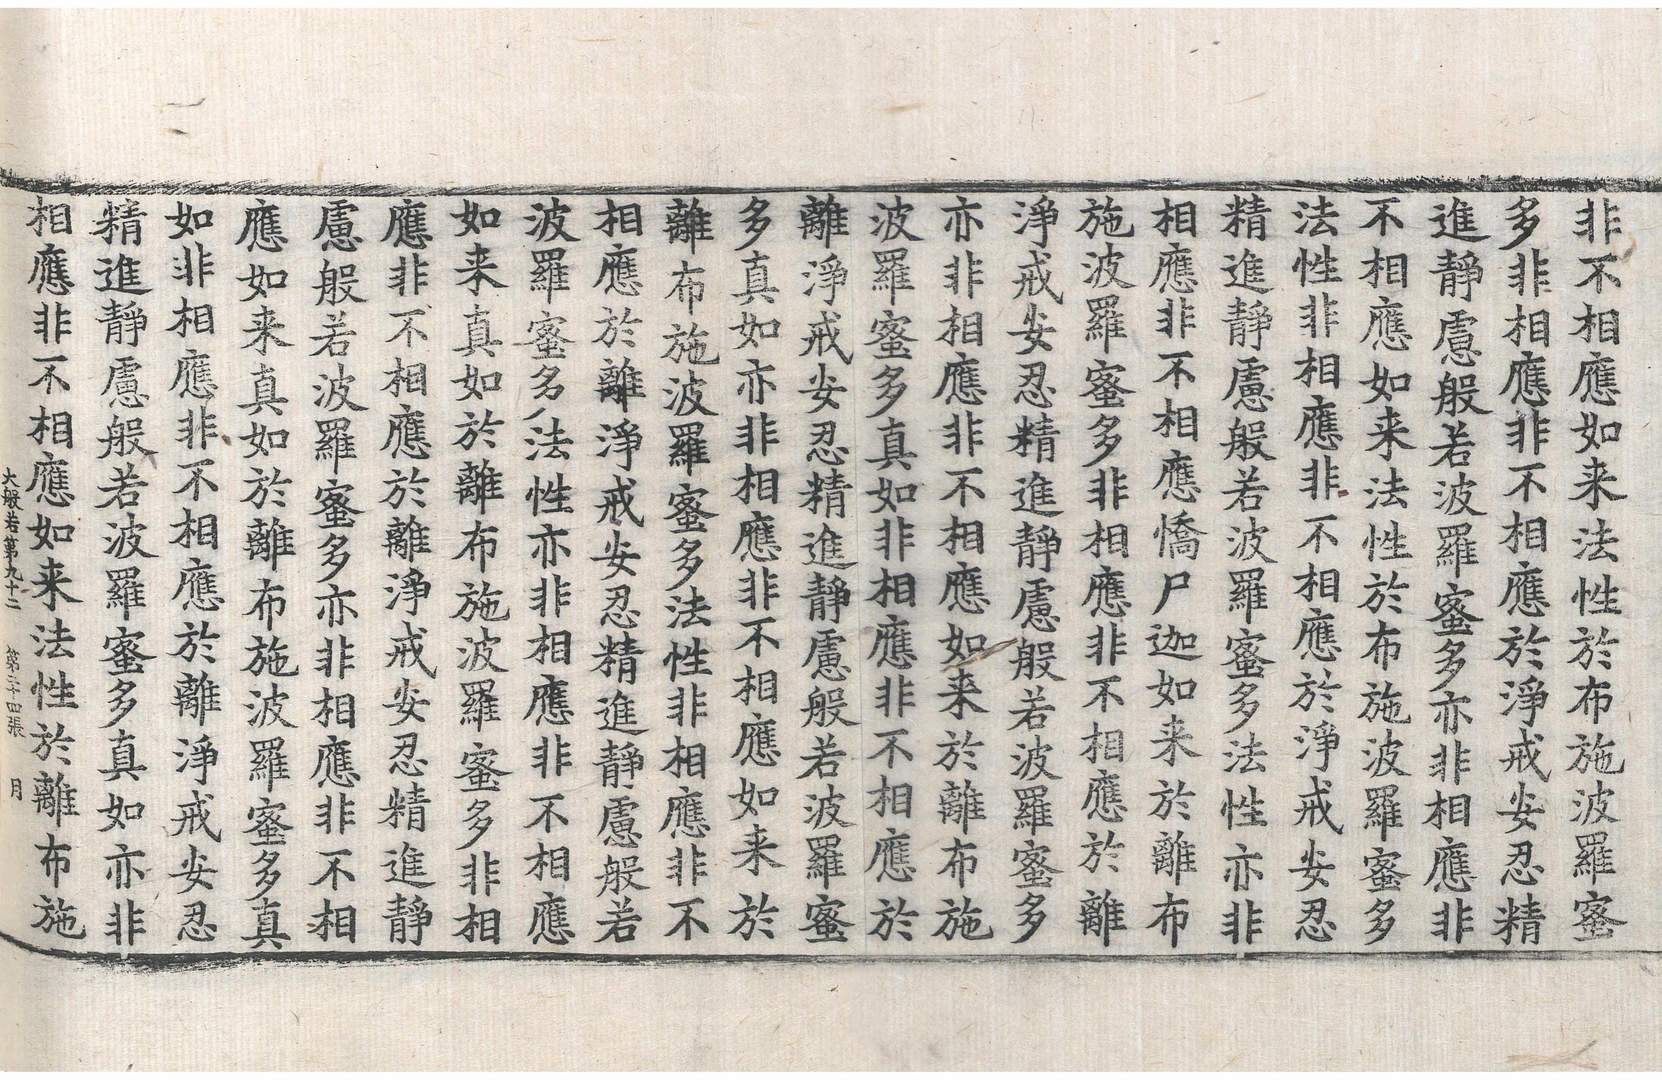 非不相應如来法性於布施波羅蜜
多非相應非不相應於淨戒安忍精
進靜慮般若波羅蜜多亦非相應非
不相應如来法性於布施波羅蜜多
法性非相應非不相應於淨戒安忍
精進靜慮般若波羅蜜多法性亦非
相應非不相應憍尸迦如来於離布
施波羅蜜多非相應非不相應於離
淨戒安忍精進靜慮般若波羅蜜多
亦非相應非不相應如来於離布施
波羅蜜多真如非相應非不相應於
離淨戒安忍精進靜慮般若波羅蜜
多真如亦非相應非不相應如来於
離布施波羅蜜多法性非相應非不
相應於離淨戒安忍精進靜慮般若
波羅蜜多法性亦非相應非不相應
如来真如於離布施波羅蜜多非相
應非不相應於離淨戒安忍精進靜
慮般若波羅蜜多亦非相應非不相
應如来真如於離布施波羅蜜多真
如非相應非不相應於離淨戒安忍
精進靜慮般若波羅蜜多真如亦非
相應非不相應如来法性於離布施
大般若第九十二 第二十四張 月